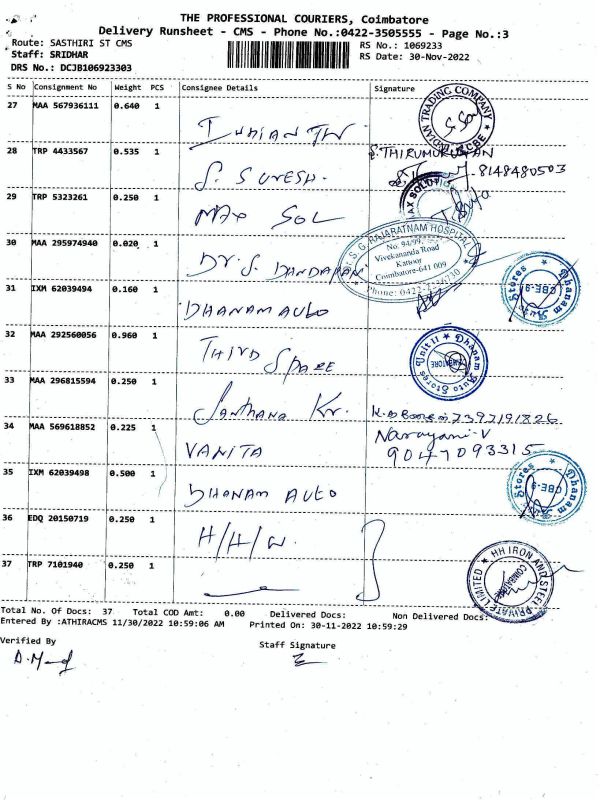 THE PROFESSIONAL COURIERS, Coimbatore
Delivery Runsheet - CMS - Phone No.:0422-3505555 - Page No.:3
Route: SASTHIRI ST CMS
RS No.: 1069233
Staff: SRIDHAR
RS Date: 30-Nov-2022
DRS No.: DCJB106923303
S No Consignment No Weight PCS Consignee Details Signature
27 MAA 567936111 0.640 1
TRADING COMPANY
28 TRP 4433567 0.535 1 S. SURESH.
S. THIRUMURUGAN
8148480503
29 TRP 5323261 0.250 1 MAX SOL
30 MAA 295974940 0.020 1 Dr. S. DANDAPAN
S. G. RAJARATNAM HOSPITAL
No. 94/99,
Vivekananda Road
Kattoor
Coimbatore-641 009
31 IXM 62039494 0.160 1 DHANAM AUTO
Dhanam Auto Stores CBE-9
32 MAA 292560056 0.960 1 THIRD SPACE
Dhanam Auto Stores Unit II
33 MAA 296815594 0.250 1 Santhana Kr.
7397191826
34 MAA 569618852 0.225 1 VANITA
Narayani-V
9047093315
35 IXM 62039498 0.500 1 DHANAM AUTO
Dhanam Auto Stores CBE-9
36 EDQ 20150719 0.250 1 H/H/W.
37 TRP 7101940 0.250 1
HH IRON AND STEEL PRIVATE LIMITED
COIMBATORE
Total No. Of Docs: 37 Total COD Amt: 0.00 Delivered Docs: Non Delivered Docs:
Entered By :ATHIRACMS 11/30/2022 10:59:06 AM Printed On: 30-11-2022 10:59:29
Verified By
Staff Signature